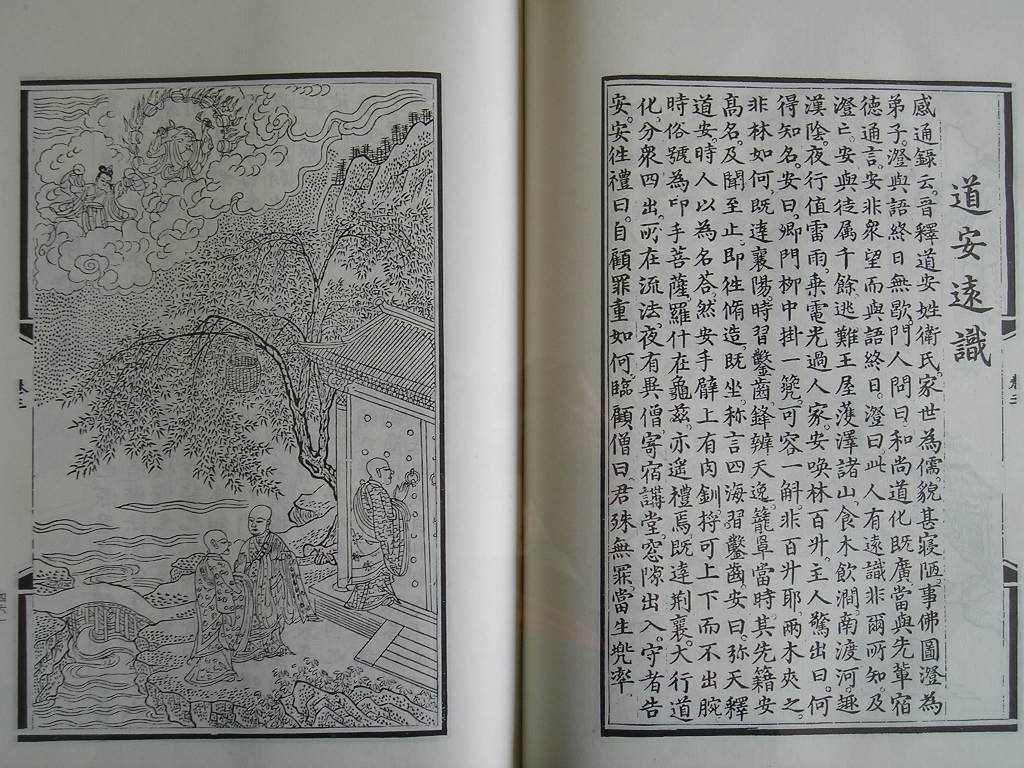 道安遠識
感通錄云。晋釋道安姓衛氏。家世為儒。貌甚寢陋。事佛圖澄為
弟子。澄與語終日無歇。門人問曰。和尚道化既廣。當與先輩宿
徳通言。安非衆望而與語終日。澄曰。此人有遠識非爾所知。及
澄亡。安與徒属千餘。逃難王屋濩澤諸山。食木飲澗。南渡河。趣
漢陰。夜行值雷雨。乗電光過人家。安喚林百升。主人驚出曰。何
得知名。安曰。卿門柳中掛一篼。可容一斛。非百升耶。兩木夾之。
非林如何。既達襄陽。時習鑿齒鋒辨天逸。籠罩當時。其先籍安
髙名。及聞至止。即徃脩造。既坐。称言四海習鑿齒。安曰。弥天釋
道安。時人以為名荅。然安手臂上有肉釧。捋可上下而不出腕。
時俗號為印手菩薩。羅什在龜茲。亦遙禮焉。既達荆襄。大行道
化。分衆四出。所在流法。夜有異僧寄宿講堂。窓隙出入。守者告
安。安徃禮曰。自顧罪重如何臨顧。僧曰。君殊無罪。當生兠率。
卷二